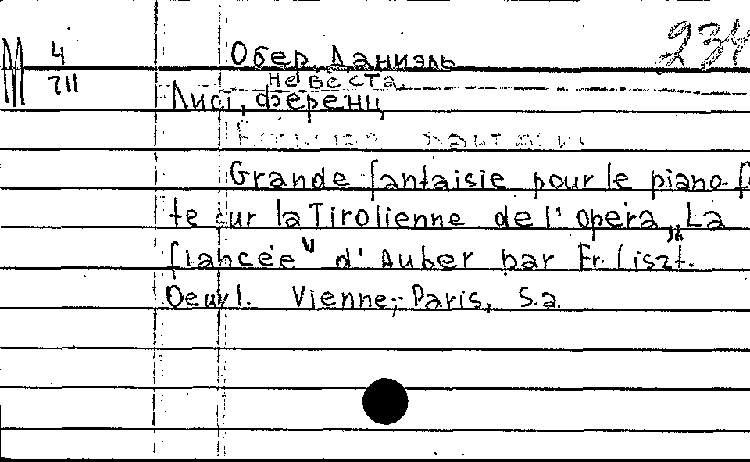 234
М 4
711
Обер, Даниэль
Невеста.
Лист, Ференц
Grande fantaisie pour le piano-f
te sur la Tirolienne de l'opera „La
fiancée" d'Auber par Fr. Liszt.
Oeuv 1. Vienne,-Paris, S.a.